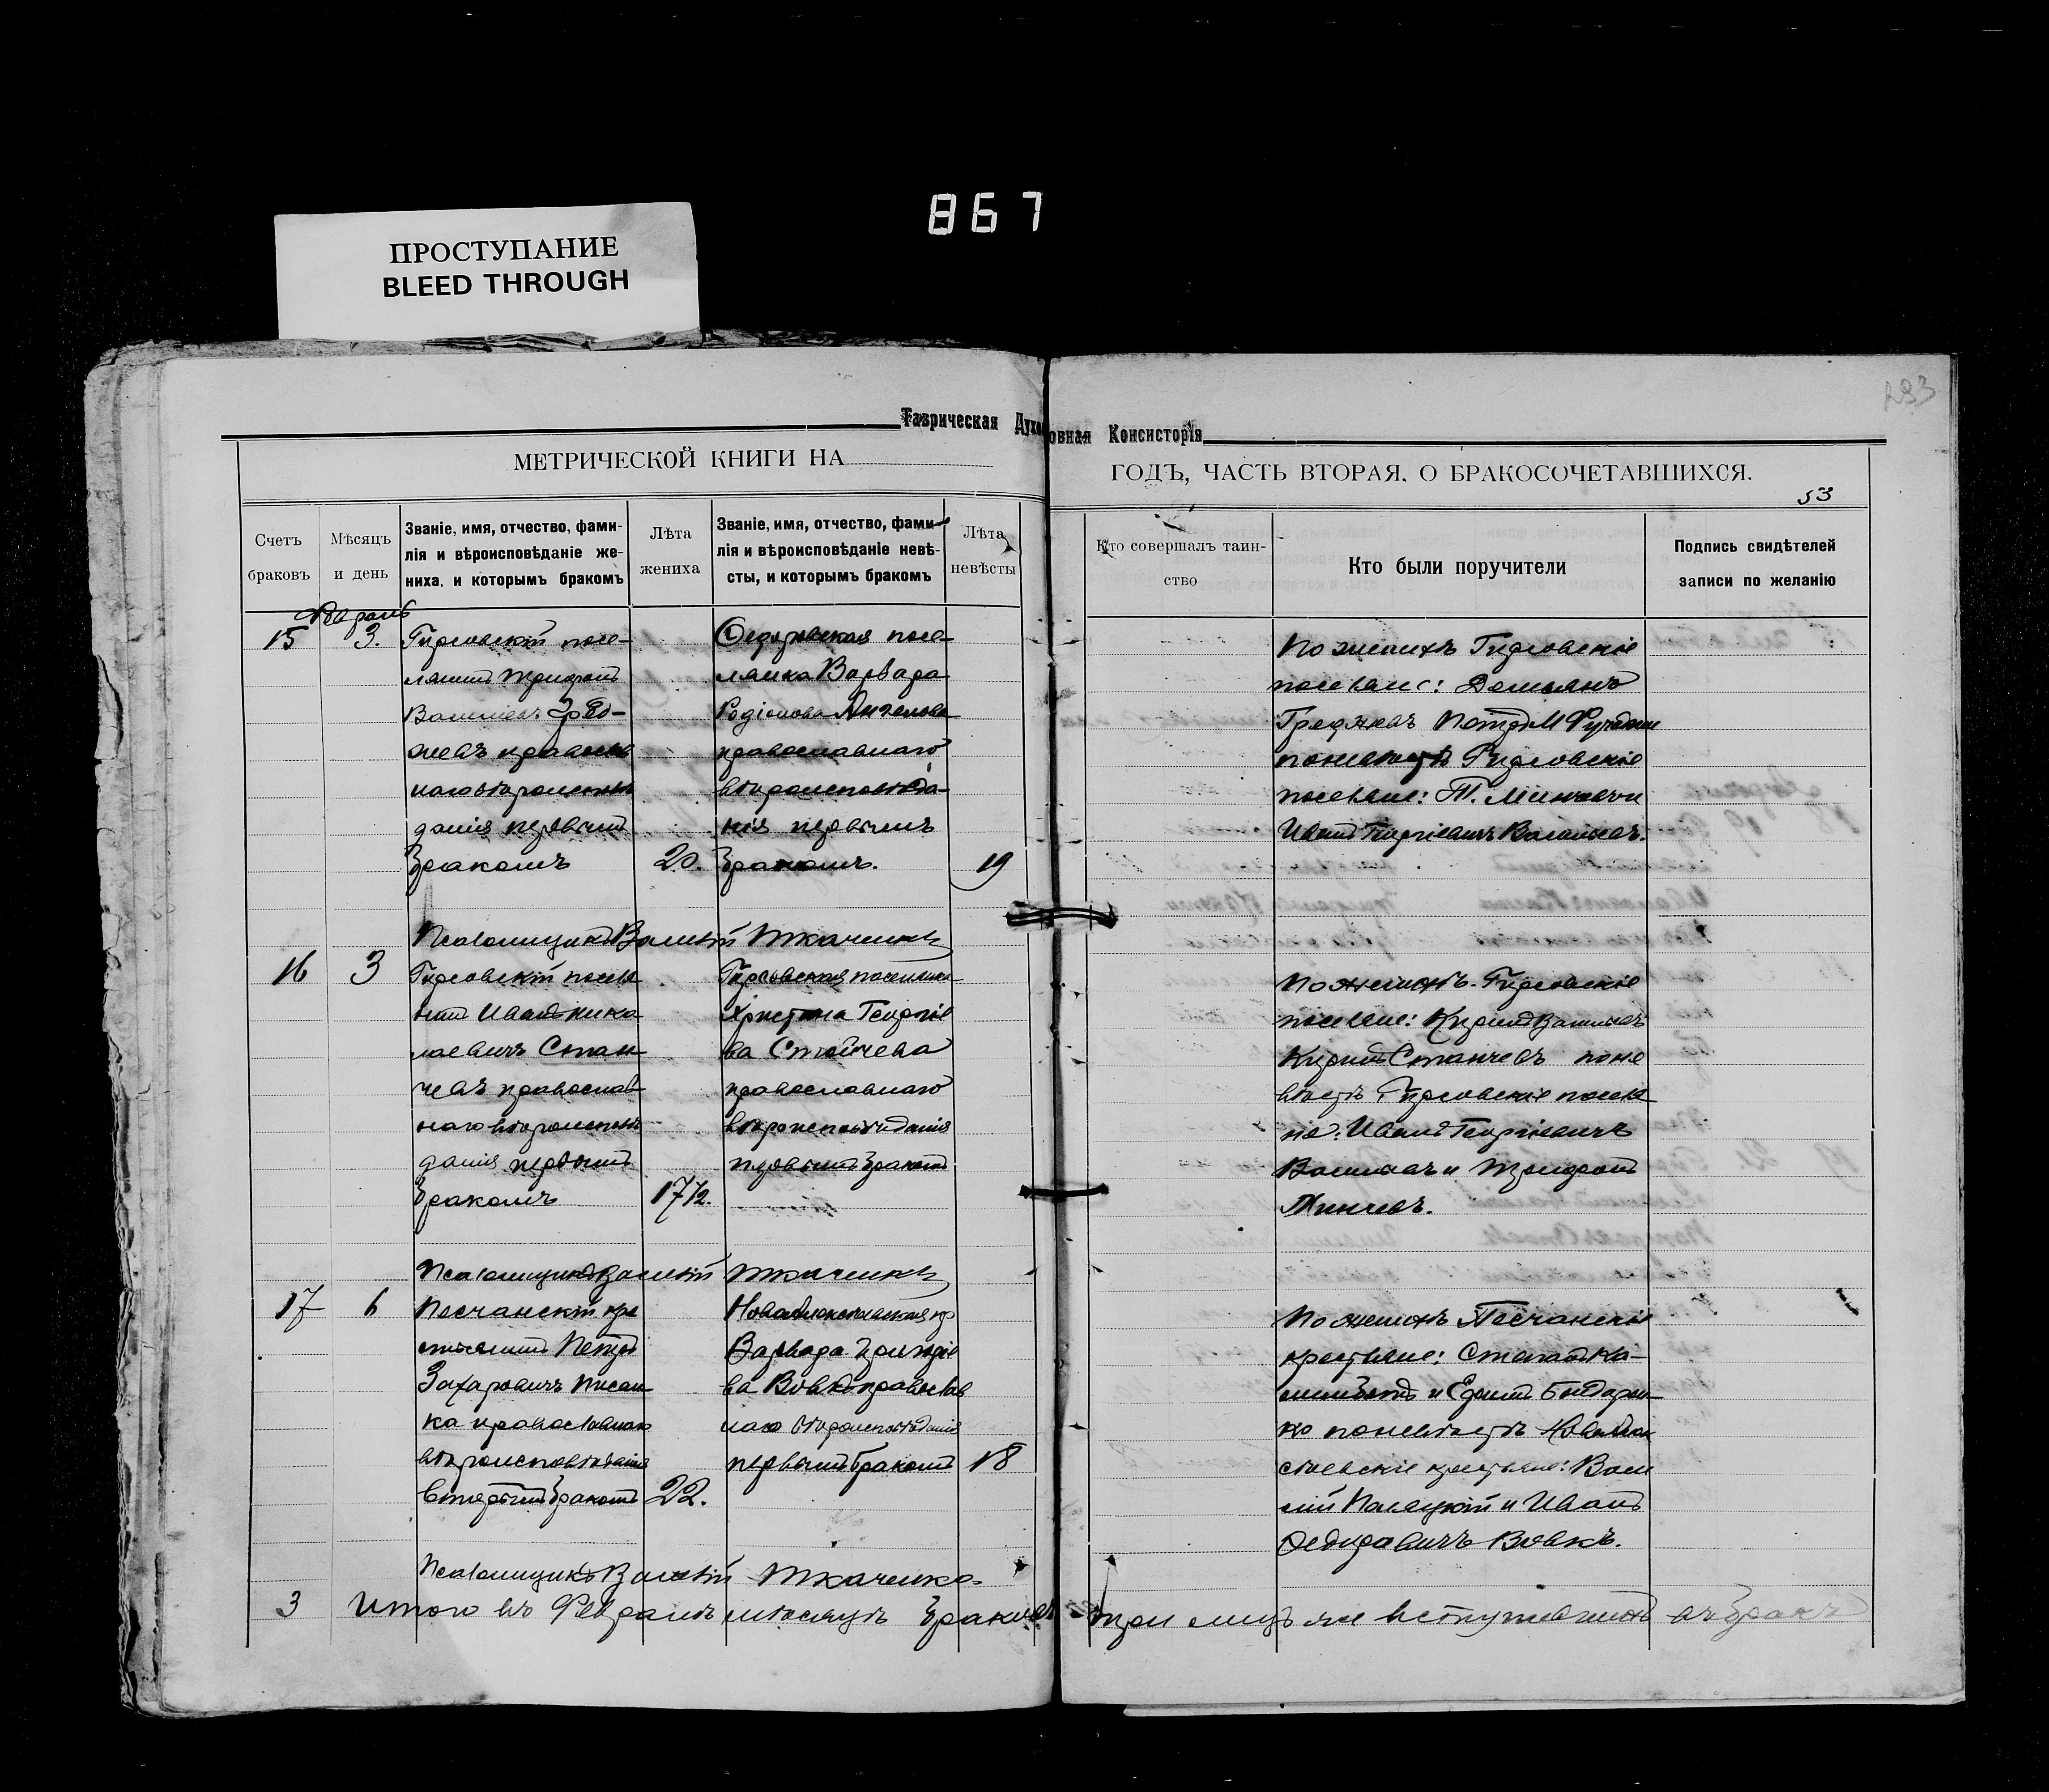 867
ПРОСТУПАНИЕ
BLEED THROUGH
293
Таврическая Духовная Консисторія
МЕТРИЧЕСКОЙ КНИГИ НА
ГОДЪ, ЧАСТЬ ВТОРАЯ. О БРАКОСОЧЕТАВШИХСЯ.
53
Счетъ браковъ
Мѣсяцъ и день
Званіе, имя, отчество, фами-
лія и вѣроисповѣданіе же-
ниха, и которымъ бракомъ
Лѣта жениха
Званіе, имя, отчество, фами-
лія и вѣроисповѣданіе невѣ-
сты, и которымъ бракомъ
Лѣта невѣсты
Кто совершалъ таин-
ство
Кто были поручители
Подпись свидѣтелей
записи по желанію
Февраль
15
3.
Гирсовскій посе-
лянинъ Трифонъ
православ
наго вѣроисповѣ
данія первымъ
бракомъ
20.
Федоровская посе-
лянка Варвара
Родіонова Ангелова
православнаго
вѣроисповѣда-
нія первымъ
бракомъ.
19
По женихѣ Гирсовскіе
поселяне: Демьянъ
по невѣстѣ Гирсовскіе
поселяне: Т. Минчевъ и
Иванъ Георгіевичъ Васильевъ.
Псаломщикъ Василій Ткаченко
16
3
Гирсовскій поселя
нинъ Иванъ Нико
лаевичъ Стан-
чевъ православ
наго вѣроисповѣ
данія первымъ
бракомъ
17½.
Гирсовская поселянка
Христина Георгіе
ва Стойчева
православнаго
вѣроисповѣданія
первымъ бракомъ
По женихѣ Гирсовскіе
поселяне: Кирилъ Васильевъ
Кирилъ Станчевъ по не
вѣстѣ Гирсовскіе поселя
не: Иванъ Георгіевичъ
Васильевъ и Трифонъ
Минчевъ.
Псаломщикъ Василій Ткаченко
17
6
Песчанскій кре
стьянинъ Петръ
Захаровичъ Писан-
ка православнаго
вѣроисповѣданія
вторымъ бракомъ
22.
Варвара Григорiе
ва Вовкъ православ
наго вѣроисповѣданія
первымъ бракомъ
18
По женихѣ Песчанскіе
крестьяне: Стефанъ Ка-
и Ефимъ Бондарен-
ко по невѣстѣ
крестьяне: Васи
лій и Иванъ
Федоровичъ Вовкъ.
Псаломщикъ Василій Ткаченко.
3 Итого въ Февралѣ мѣсяцѣ браковъ три лицъ же вступившихъ въ бракъ